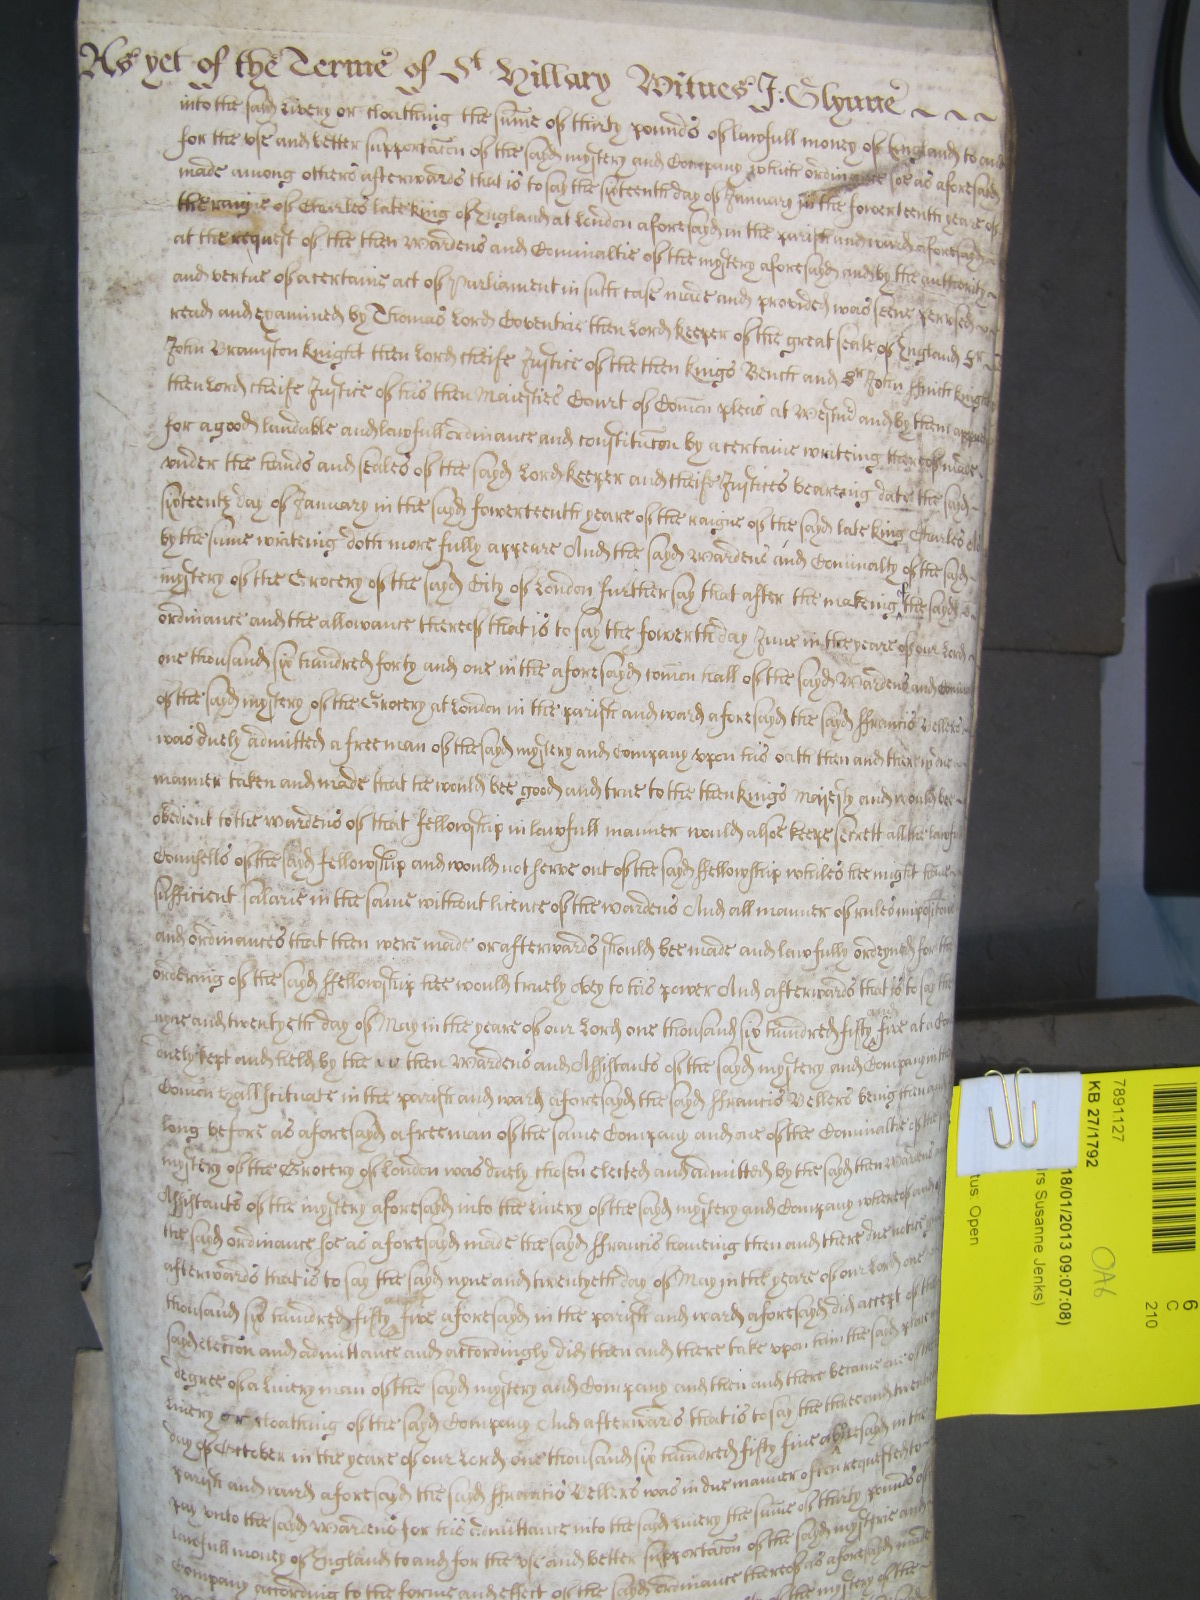 As yet of the Terme of St Hillary Witnes J: Glynne
into the sayd Livery or cloathing the sume of thirty pounds of lawfull money of England to and
for the vse and better supportacon of the sayd mystery and Company which ordinance soe as aforesayd
made among others afterwards that is to say the sixteenth day of January in the fowerteenth yeare of
the raigne of Charles late king of England at London aforesayd in the parish and ward aforesayd
at the request of the then Wardens and Cominaltie of the mystery aforesayd and by the authority
and vertue of a certaine act of Parliament in such case made and provided was seene perused
read and examined by Thomas Lord Coventrie then Lord Keeper of the great seale of England Sr
John Bramston Knight then Lord cheife Justice of the then kings Bench and Sr John ffinch knight
then Lord cheife Justice of his then Majesties Court of Comon pleas at Westmr and by them
for a good laudable and lawfull ordinance and constitucon by a certaine writeing thereof made
vnder the hands and seales of the sayd Lord Keeper and cheife Justices beareing date the sayd
sixteenth day of January in the sayd fowerteenth yeare of the raigne of the sayd late king Charles as
by the same writeing doth more fully appeare And the sayd Wardens and Cominalty of the sayd
mystery of the Grocery of the sayd City of London further say that after the makeing of the sayd
ordinance and the allowance thereof that is to say the fowerth day June in the yeare of our Lord
one thousand six hundred forty and one in the aforesayd comon hall of the sayd Wardens and
of the sayd mystery of the Grocery at London in the parish and ward aforesayd the sayd ffrancis Vellers
was duely admitted a freeman of the sayd mystery and Company vpon his oath then and there in due
manner taken and made that he would bee good and true to the then kings Majesty and would bee
obedient to the wardens of that fellowship in lawfull manner would alsoe keepe secrett all the lawfull
Counsells of the sayd fellowship and would not serve out of the sayd ffellowship whiles hee might have
sufficient salarie in the same without licence of the wardens And all manner of rules
and ordinances that then were made or afterwards should bee made and lawfully ordeyned for the
ordering of the sayd ffellowship hee would truely obey to his power And afterwards that is to say the
nyne and twentyeth day of May in the yeare of our Lord one thousand six hundred fifty and five at a
duely kept and held by the then Wardens and Assistants of the sayd mystery and Company in the
Comon Hall scituate in the parish and ward aforesayd the sayd ffrancis Vellers being then and
long before as aforesayd a freeman of the same Company and one of the Cominaltie of the
mystery of the Grocery of London was duely chosen elected and admitted by the sayd then Wardens and
Assistants of the mystery aforesayd into the Livery of the sayd mystery and Company whereof and of
the sayd ordinance soe as aforesayd made the sayd ffrancis haveing then and there due notice
afterwards that is to say the sayd nyne and twentyeth day of May in the yeare of our Lord one
thousand six hundred fifty and five aforesayd in the parish and ward aforesayd did accept of the
sayd eleccon and admittance and accordingly did then and there take vpon him the sayd place
degree of a Livery man of the sayd mystery and Company and then and there became one of the
Livery or cloathing of the sayd Company And afterwards that is to say the three and twentieth
day of October in the yeare of our Lord one thousand six hundred fifty five aforesayd in the
parish and ward aforesayd the sayd ffrancis Vellers was in due manner often requested to
pay vnto the sayd Wardens for his admittance into the sayd Livery the same of thirty pounds of
lawfull money of England to and for the vse and better supportacon of the sayd mysterie and
Company according to the forme and effect of the sayd ordinance thereof as aforesayd made
of the mystery of the
7891127
KB 27/1792
18/01/2013 09:07:08)
rs Susanne Jenks)
tus Open
OA6
6
C
210